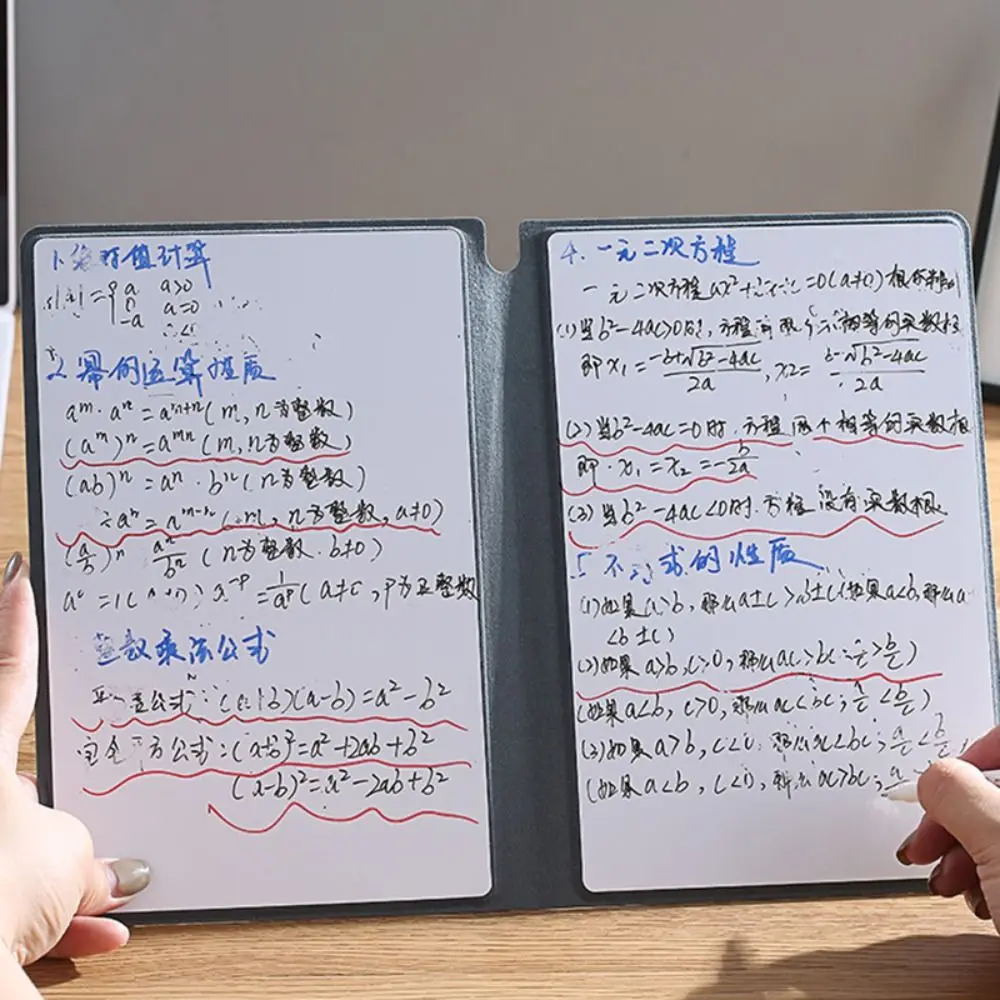 1. 绝对值计算
a a>0
0 a=0
-a <0
2. 幂的运算性质
aᵐ·aⁿ=aᵐ⁺ⁿ(m,n为整数)
(aᵐ)ⁿ=aᵐⁿ(m,n为整数)
(ab)ⁿ=aⁿ·bⁿ(n为整数)
÷aⁿ=aᵐ⁻ⁿ(m,n为整数,a≠0)
(a/b)ⁿ aⁿ/bⁿ (n为整数.b≠0)
a⁻ᵖ=1/aᵖ(a≠ ,p为正整数
整数乘法公式
公式: b)(a-b)=a²-b²
方公式:(a+b)²=a²+2ab+b²
(a-b)²=a²-2ab+b²
4. 一元二次方程
一元二次方程ax²+ =0(a≠0)根的
(1)当b²-4ac>0时,方程有两个不相等的实数根
即x₁=-b+√b²-4ac/2a,x₂= b-√b²-4ac/2a
(2)当b²-4ac=0时.方程两个相等的实数根
即·x₁=x₂=-b/2a
(3)当b²-4ac<0时.方程没有实数根
5 不 式的性质
(1)如果a>b,那么a±c>b±c(如果a<b,那么a
<b±c)
(2)如果a>b,c>0,那么ac>bc; >b/c)
(如果a<b,c>0,那么ac<bc;a/c<b/c)
(3)如果a>b,c<0 那么ac<bc;a/c<b/c,
(如果a<b,c<0,那么ac>bc;a